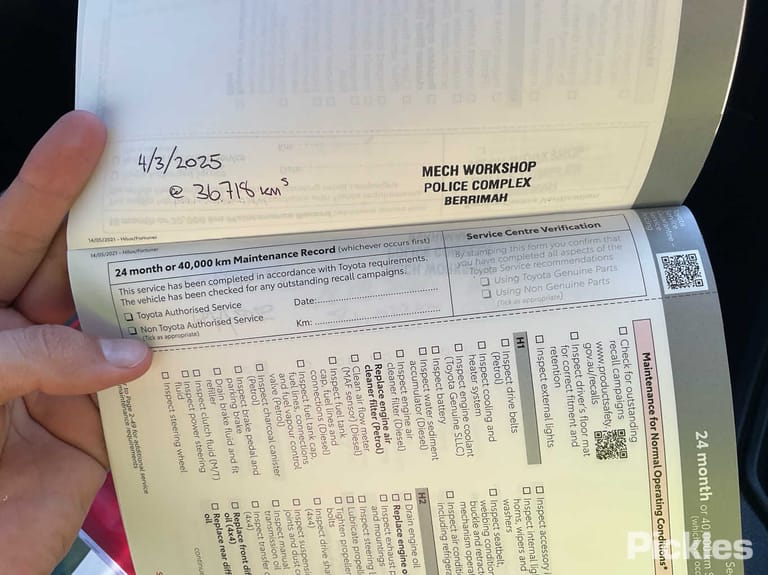 4/3/2025
@ 36718 kms
MECH WORKSHOP
POLICE COMPLEX
BERRIMAH
14/05/2021 - Hilux/Fortuner
14/05/2021 - Hilux/Fortuner
24 month or 40,000 km Maintenance Record (whichever occurs first)
This service has been completed in accordance with Toyota requirements.
The vehicle has been checked for any outstanding recall campaigns.
Toyota Authorised Service
Non Toyota Authorised Service
(Tick as appropriate)
Date:
Km:
Service Centre Verification
By stamping this form you confirm that
you have completed all aspects of the
Toyota Service recommendations
Using Toyota Genuine Parts
Using Non Genuine Parts
(Tick as appropriate)
24 month or 40
Maintenance for Normal Operating Conditions*
Check for outstanding
recall campaigns
www.productsafety.
gov.au/recalls
Inspect driver's floor mat
for correct fitment and
retention
Inspect external lights
H1
Inspect drive belts
(Petrol)
Inspect cooling and
heater system
Inspect engine coolant
(Toyota Genuine SLLC)
Inspect battery
Inspect water sediment
accumulator (Diesel)
Inspect engine air
cleaner filter (Diesel)
Replace engine air
cleaner filter (Petrol)
Clean air flow meter
(MAF sensor) (Diesel)
Inspect fuel tank
cap, fuel lines and
connections (Diesel)
Inspect fuel tank cap,
fuel lines, connections
and fuel vapour control
valve (Petrol)
Inspect charcoal canister
(Petrol)
Inspect brake pedal and
parking brake
Drain brake fluid and fit
new
Inspect clutch fluid (M/T)
Inspect power steering
fluid
Inspect steering wheel
to Page 2-49 for additional service
maintenance requirements
Inspect accessory
Inspect internal lig
horns, wipers and
washers
Inspect seatbelt,
webbing condition
buckle and retract
mechanism opera
Inspect air conditi
including refrigera
H2
Drain engine oil
Replace engine o
Inspect exhaust
and mountings
Inspect steering l
Lubricate propelle
Tighten propeller
bolts
Inspect drive sha
(4x4)
Inspect suspensi
joints and dust c
Inspect manual
transmission oil
Inspect transfer c
(4x4)
Replace front diff
oil (4x4)
Replace rear diff
oil
continu
Pickles